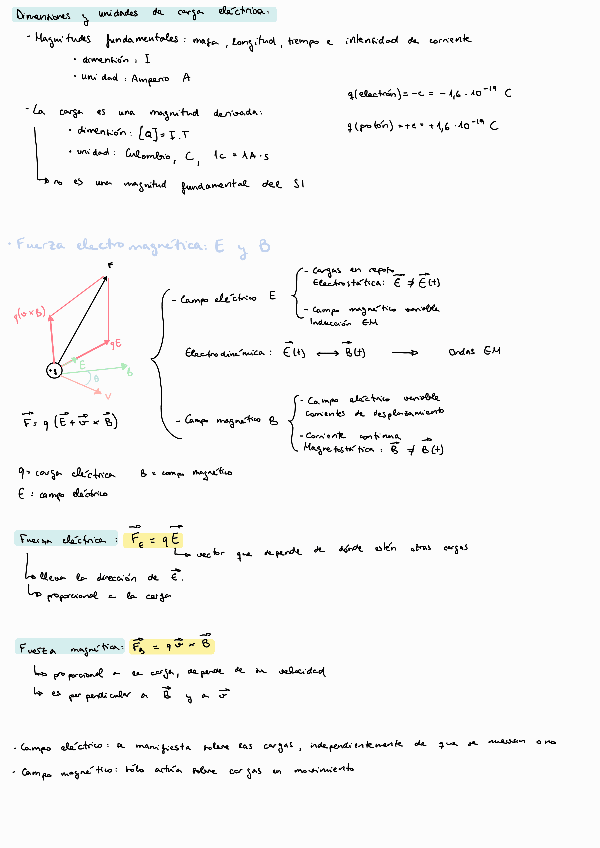 Dimensiones y unidades de carga eléctrica:
- Magnitudes fundamentales: masa, longitud, tiempo e intensidad de corriente
• dimensión: I
• unidad: Amperio A
q(electrón) = -e = -1,6 · 10⁻¹⁹ C
- La carga es una magnitud derivada:
q(protón) = +e = +1,6 · 10⁻¹⁹ C
• dimensión: [Q] = I.T
• unidad: Culombio, C, 1C = 1A·s
↳ no es una magnitud fundamental del SI
· Fuerza electromagnética: E y B
F
q(v×B)
qE
+q
E
B
θ
v
F⃗ = q (E⃗ + v⃗ × B⃗)
- Campo eléctrico E
- Cargas en reposo
Electrostática: E⃗ ≠ E⃗(t)
- Campo magnético variable
Inducción EM
Electrodinámica: E⃗(t) ↔ B⃗(t) → Ondas EM
- Campo magnético B
- Campo eléctrico variable
Corrientes de desplazamiento
- Corriente continua
Magnetostática: B⃗ ≠ B⃗(t)
q = carga eléctrica B = campo magnético
E = campo eléctrico
Fuerza eléctrica: F⃗E = qE⃗
↳ vector que depende de dónde estén otras cargas
↳ lleva la dirección de E⃗.
↳ proporcional a la carga
Fuerza magnética: F⃗B = q v⃗ × B⃗
↳ proporcional a la carga, depende de su velocidad
↳ es perpendicular a B⃗ y a v⃗
· Campo eléctrico: se manifiesta sobre las cargas, independientemente de que se muevan o no
· Campo magnético: sólo actúa sobre cargas en movimiento